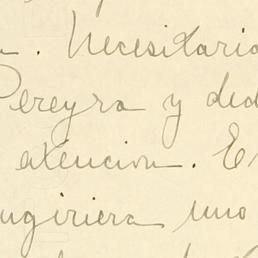 . Necesitaria
Pereyra y ded
atencion. E
ugiriera uno